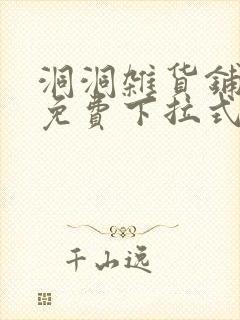 洞洞雑货鋪
免費下拉式
千山远